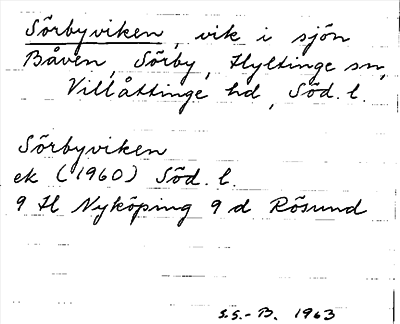 Sörbyviken, vik i sjön
Båven, Sörby, Hyltinge sn,
Villåttinge hd, Söd. l.
Sörbyviken
ek (1960) Söd. l.
9 H Nyköping 9 d Rösund
S.S.-B. 1963